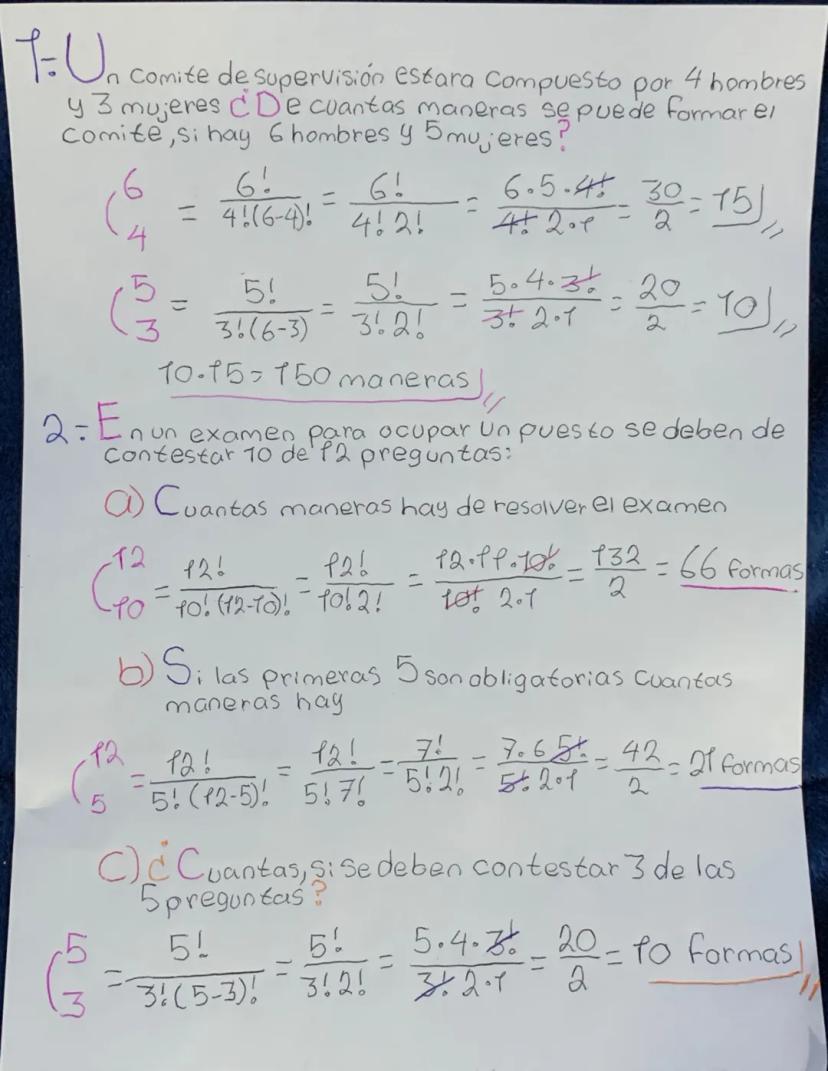 1= Un comite de supervisión estara compuesto por 4 hombres
y 3 mujeres ¿De cuantas maneras se puede formar el
comite, si hay 6 hombres y 5 mujeres?
(6 4 = 6!/4!(6-4)! = 6!/4!2! = 6·5·4!/4!2·1 = 30/2 = 15
(5 3 = 5!/3!(6-3) = 5!/3!2! = 5·4·3!/3!2·1 = 20/2 = 10
10·15 = 150 maneras
2= En un examen para ocupar un puesto se deben de
contestar 10 de 12 preguntas:
a) Cuantas maneras hay de resolver el examen
(12 10 = 12!/10!(12-10)! = 12!/10!2! = 12·11·10!/10! 2·1 = 132/2 = 66 formas
b) Si las primeras 5 son obligatorias cuantas
maneras hay
(12 5 = 12!/5!(12-5)! = 12!/5!7! = 7!/5!2! = 7·6 5!/5!2·1 = 42/2 = 21 formas
C) ¿Cuantas, si se deben contestar 3 de las
5 preguntas?
(5 3 = 5!/3!(5-3)! = 5!/3!2! = 5·4·3!/3!2·1 = 20/2 = 10 formas